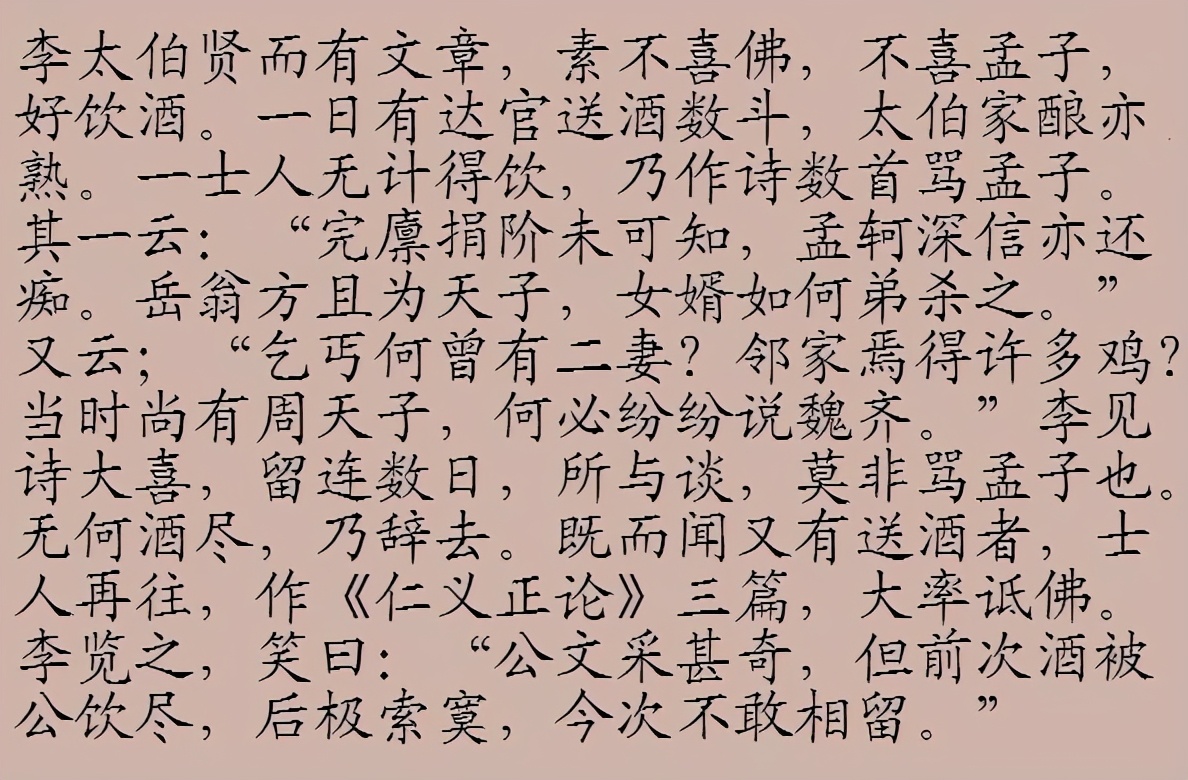 李太伯贤而有文章，素不喜佛，不喜孟子，
好饮酒。一日有达官送酒数斗，太伯家酿亦
熟。一士人无计得饮，乃作诗数首骂孟子。
其一云：“完廪捐阶未可知，孟轲深信亦还
痴。岳翁方且为天子，女婿如何弟杀之。”
又云；“乞丐何曾有二妻？邻家焉得许多鸡？
当时尚有周天子，何必纷纷说魏齐。”李见
诗大喜，留连数日，所与谈，莫非骂孟子也。
无何酒尽，乃辞去。既而闻又有送酒者，士
人再往，作《仁义正论》三篇，大率诋佛。
李览之，笑曰：“公文采甚奇，但前次酒被
公饮尽，后极索寞，今次不敢相留。”